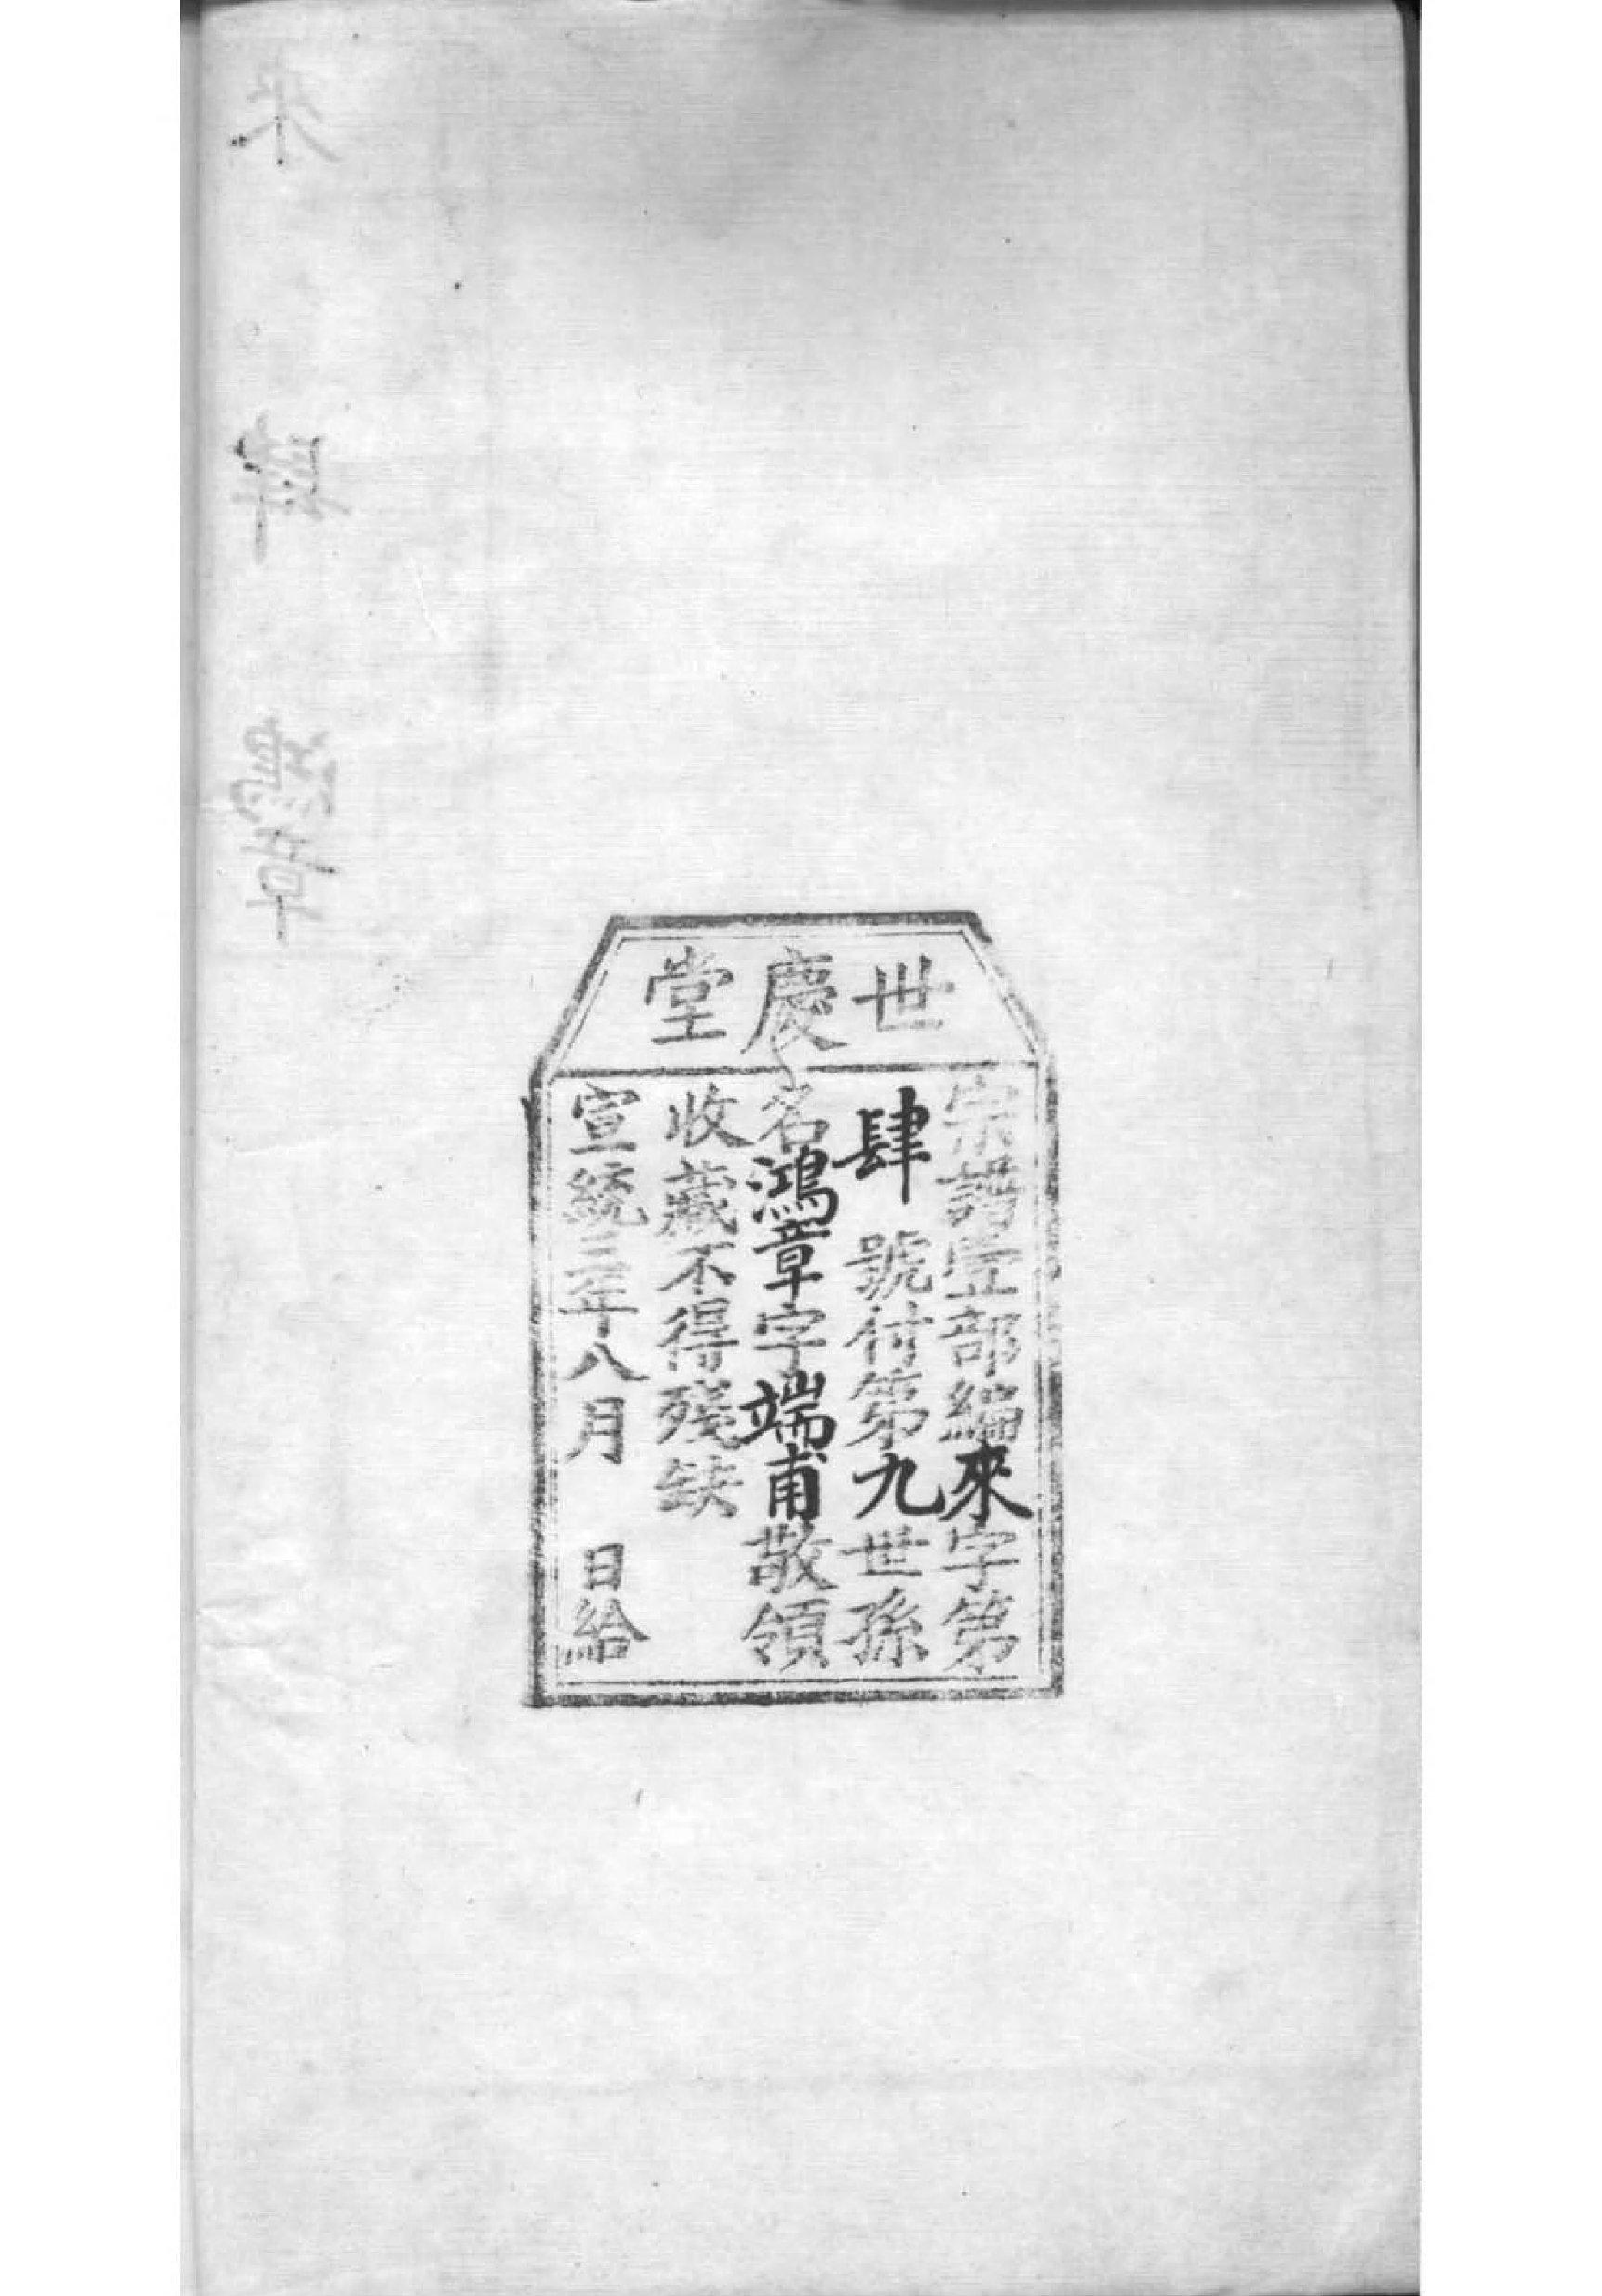 世慶堂
宗譜壹部編來字第
肆號付第九世孫
名鴻章字端甫敬領
收藏不得殘缺
宣統三年八月　日給